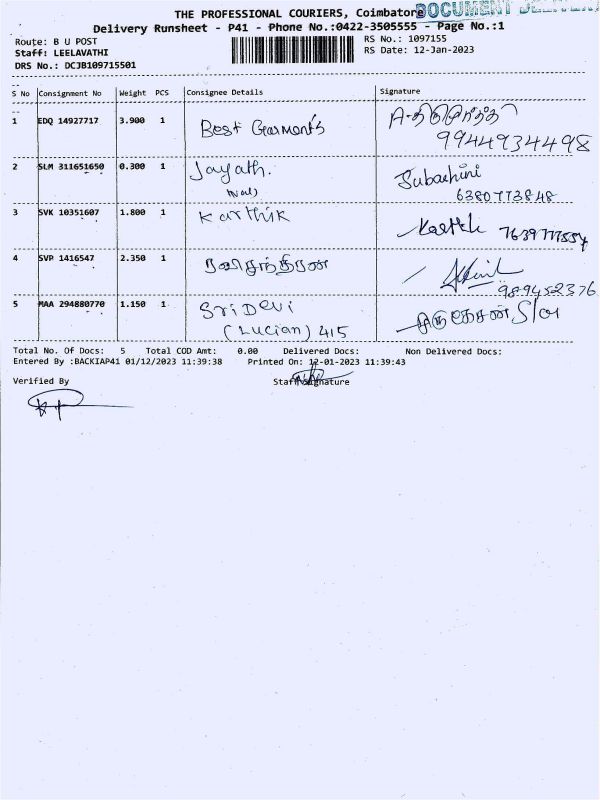 THE PROFESSIONAL COURIERS, Coimbatore
DOCUMENT
Delivery Runsheet - P41 - Phone No.:0422-3505555 - Page No.:1
Route: B U POST
RS No.: 1097155
Staff: LEELAVATHI
RS Date: 12-Jan-2023
DRS No.: DCJB109715501
S No Consignment No Weight PCS Consignee Details Signature
1 EDQ 14927717 3.900 1 Best Garments
9944934498
2 SLM 311651650 0.300 1 Jayath. Subashini
6380773848
3 SVK 10351607 1.800 1 Karthik Karthik 7639777554
4 SVP 1416547 2.350 1
989452376
5 MAA 294880770 1.150 1 SriDevi
(Lucian) 415 S/o
Total No. Of Docs: 5 Total COD Amt: 0.00 Delivered Docs: Non Delivered Docs:
Entered By :BACKIAP41 01/12/2023 11:39:38 Printed On: 12-01-2023 11:39:43
Verified By Staff Signature